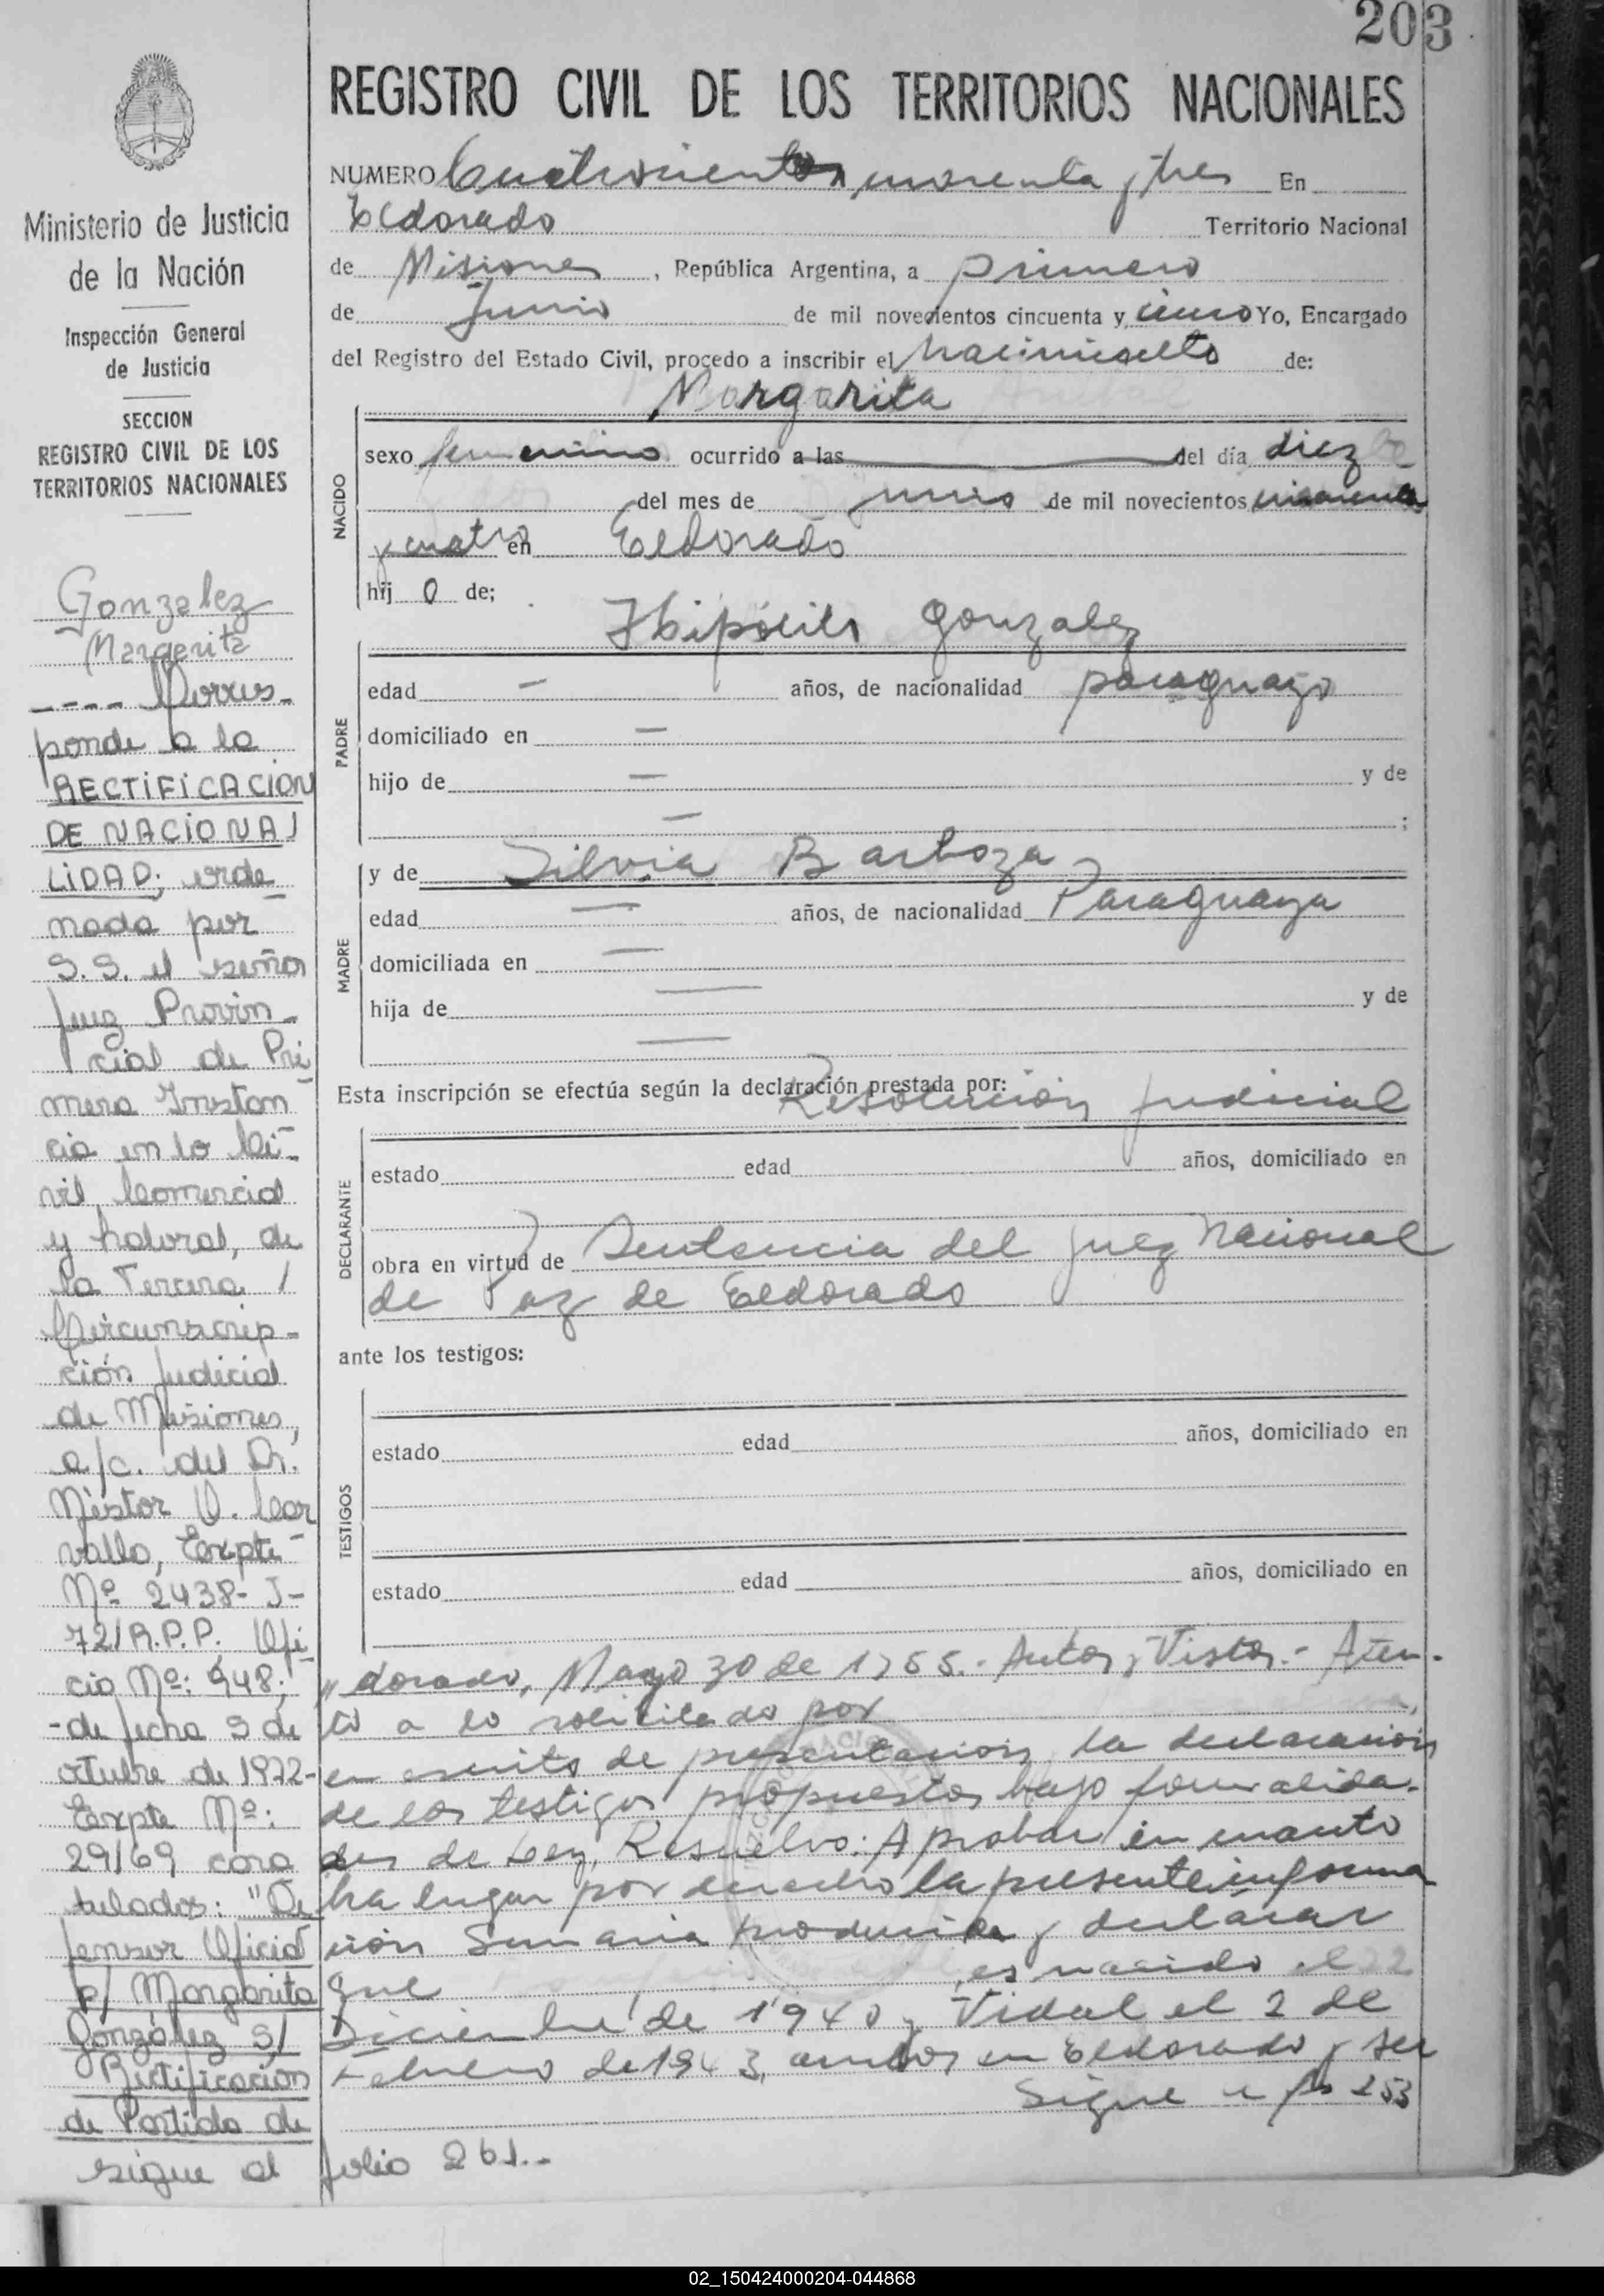 203
REGISTRO CIVIL DE LOS TERRITORIOS NACIONALES
NUMERO Cuatrocientos, noventa y tres En
Eldorado Territorio Nacional
de Misiones, República Argentina, a primero
de Junio de mil novecientos cincuenta y cinco Yo, Encargado
del Registro del Estado Civil, procedo a inscribir el Nacimiento de:
Margarita
NACIDO
sexo femenino ocurrido a las del día diez
del mes de junio de mil novecientos
y cuatro en Eldorado
hij o de;
Hipólito Gonzalez
PADRE
edad — años, de nacionalidad paraguayo
domiciliado en —
hijo de — y de
— ;
MADRE
y de Silvia Barboza
edad — años, de nacionalidad Paraguaya
domiciliada en —
hija de — y de
—
Esta inscripción se efectúa según la declaración prestada por:
Resolución Judicial
DECLARANTE
estado edad años, domiciliado en
obra en virtud de Sentencia del Juez Nacional
de Paz de Eldorado
ante los testigos:
TESTIGOS
estado edad años, domiciliado en
estado edad años, domiciliado en
dorado, Mayo 30 de 1955.- Autos y Vistos.- Aten-
to a lo solicitado por
en escrito de presentación, la declaración
de los testigos propuestos bajo formalida-
des de Ley, Resuelvo: Aprobar en cuanto
ha lugar por derecho la presente informa
ción Sumaria producida y declarar
que es nacido el 22
Diciembre de 1940 y Vidal el 2 de
Febrero de 1943, ambos en Eldorado y ser
Sigue a fs 253
Ministerio de Justicia
de la Nación
Inspección General
de Justicia
SECCION
REGISTRO CIVIL DE LOS
TERRITORIOS NACIONALES
Gonzalez
Margarita
---- Corres-
ponde a la
RECTIFICACION
DE NACIONA/
LIDAD; orde-
nada por
S.S. el señor
Juez Provin-
cial de Pri-
mera Instan-
cia en lo Ci-
vil, Comercial
y Laboral, de
la Tercera /
Circunscrip-
ción Judicial
de Misiones,
a/c. del Dr.
Néstor O. Car-
vallo, Expte
Nº 2438-J-
72/R.P.P. Ofi-
cio Nº: 948;
-de fecha 9 de
octubre de 1972-
Expte Nº:
29/69 cara
tulados: "De
fensor Oficial
p/ Margarita
González S/
Rectificación
de Partida de
sigue al folio 261.-
02_150424000204-044868